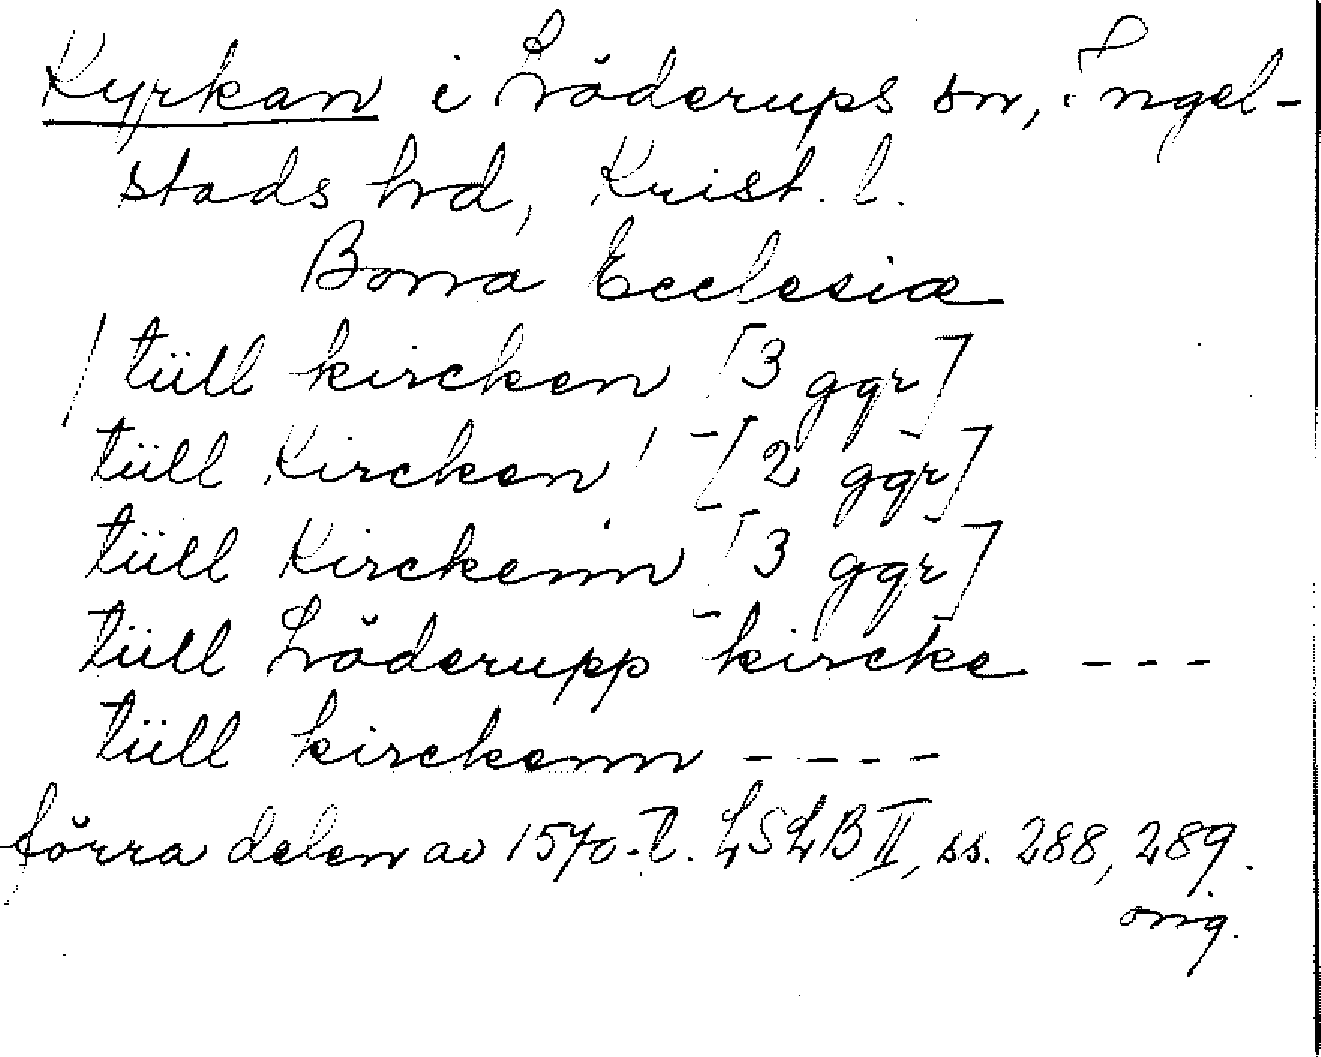 Kyrkan i Löderups sn, Ingel-
stads hrd, Krist. l.
Bona Ecclesiæ
/ tüll kircken [3 ggr]
tüll Kircken [2 ggr]
tüll Kirckenn [3 ggr]
tüll Löderupp kircke ---
tüll kirckenn ----
förra delen av 1570-t. LSLB II, ss. 288, 289.
orig.